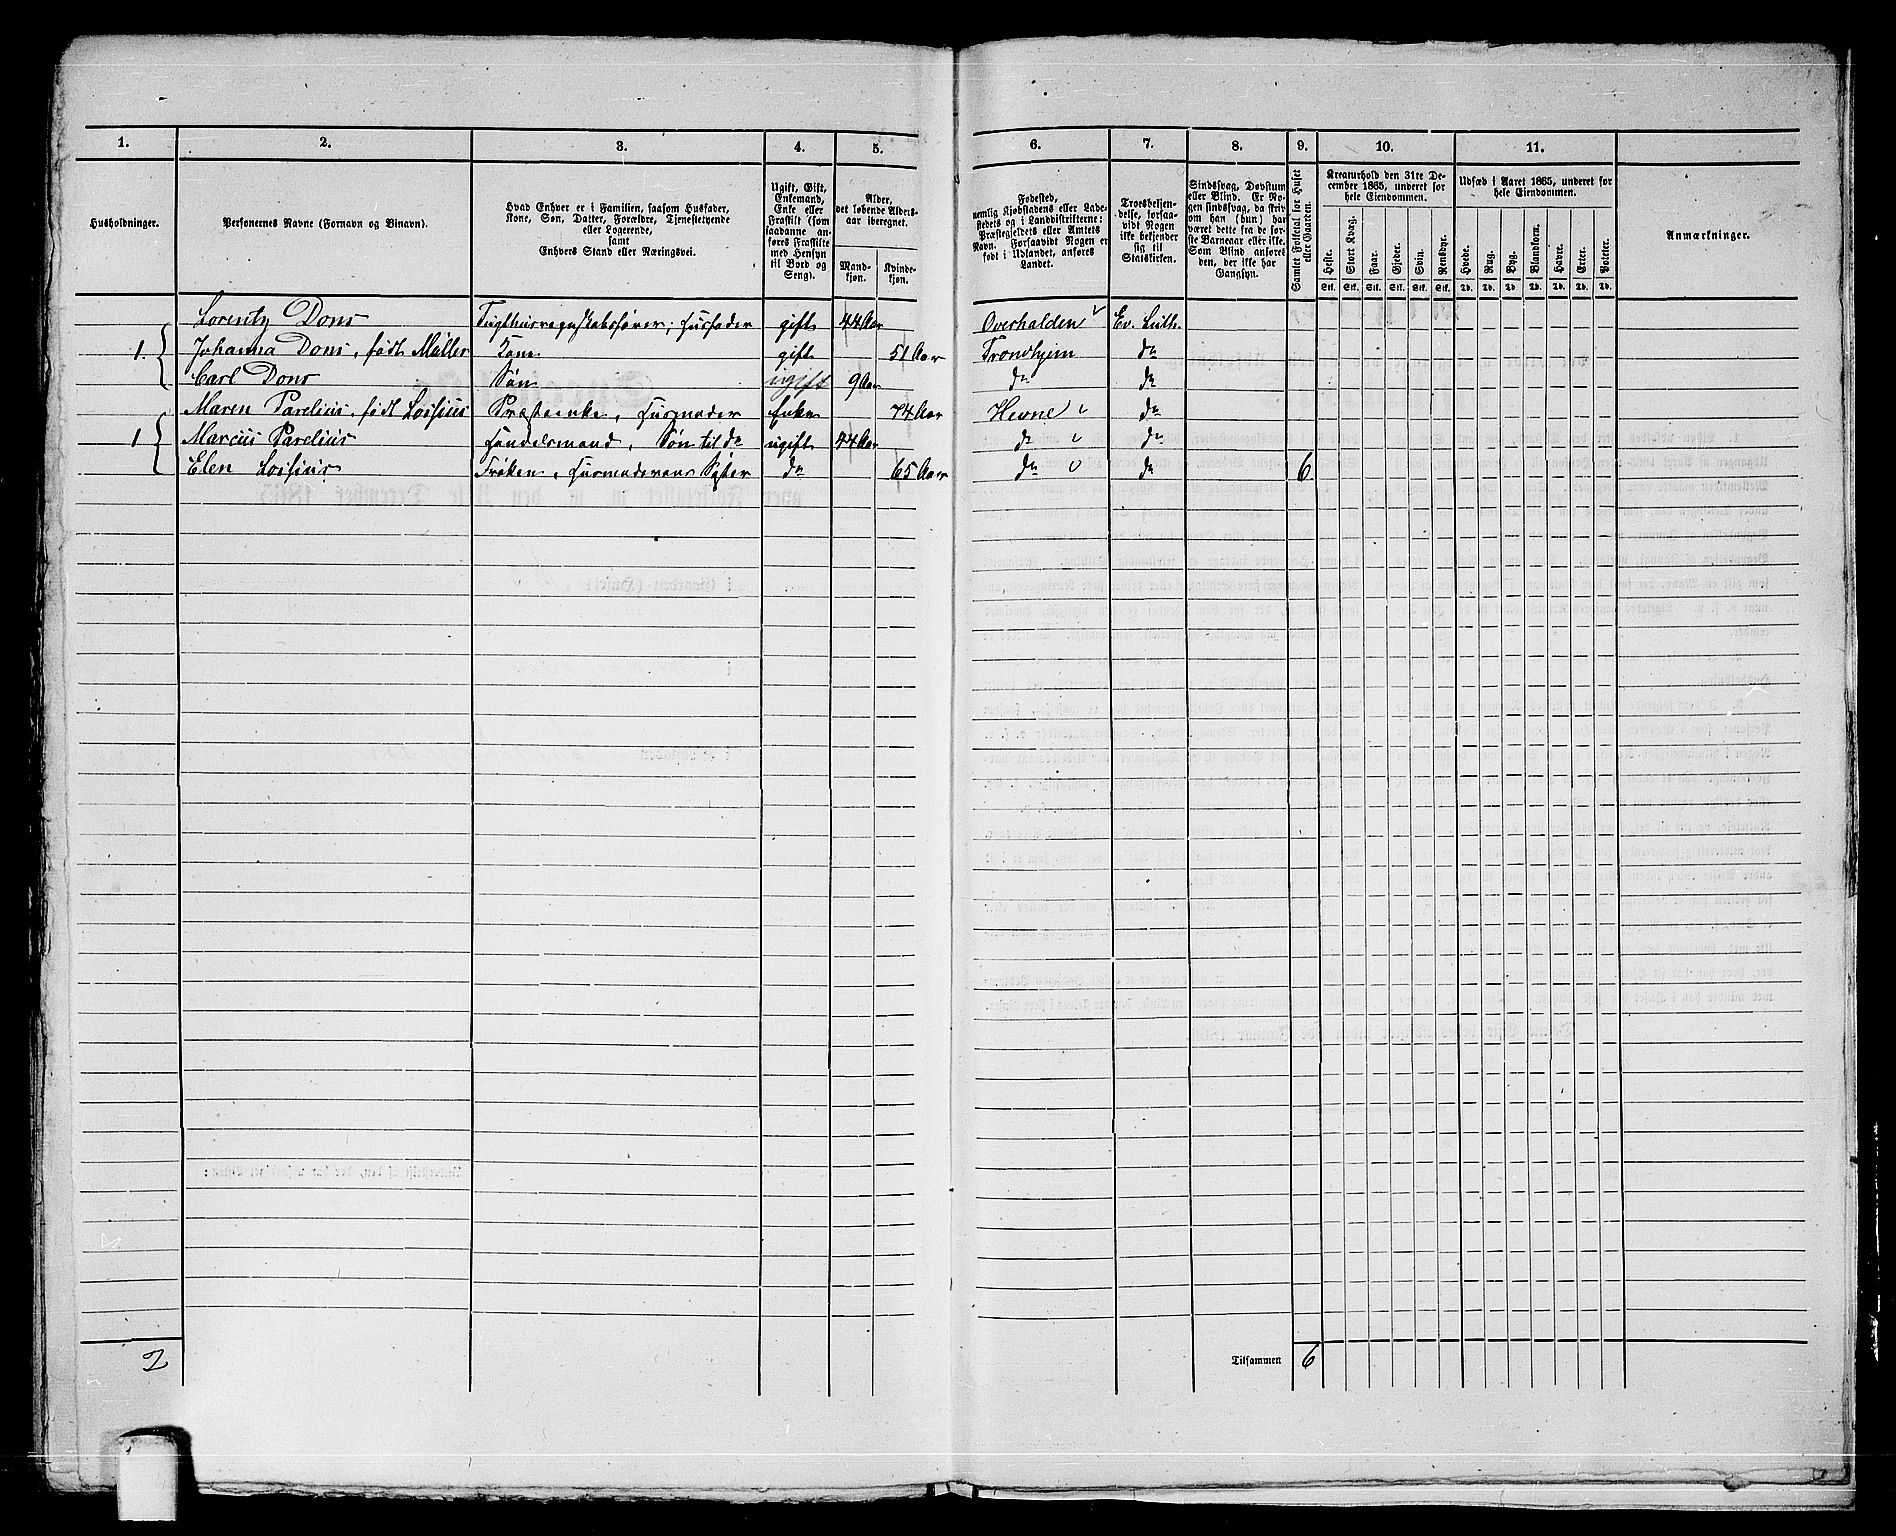 1. 2. 3. 4. 5. 6. 7. 8. 9. 10. 11.
Husholdninger.
Personernes Navne (Fornavn og Binavn).
Hvad Enhver er i Familien, saasom Husfader,
Kone, Søn, Datter, Forældre, Tjenestetyende
eller Logerende,
samt
Enhvers Stand eller Næringsvei.
Ugift, Gift,
Enkemand,
Enke eller
Fraskilt (som
saadanne an-
føres Fraskilte
med Hensyn
til Bord og
Seng).
Alder,
det løbende Alders-
aar iberegnet.
Mand-
kjøn.
Kvinde-
kjøn.
Fødested,
nemlig Kjøbstadens eller Lade-
stedets og i Landdistrikterne:
Præstegjeldets eller Amtets
Navn. Forsaavidt Nogen er
født i Udlandet, anføres
Landet.
Troesbekjen-
delse, forsaa-
vidt Nogen
ikke bekjender
sig til
Statskirken.
Sindssvag, Døvstum
eller Blind. Er No-
gen sindssvag, da skriv
om han (hun) har
været dette fra de før-
ste Barneaar eller ikke.
Som Blind ansøres
den, der ikke har
Gangsyn.
Samlet Folketal for Huset
eller Gaarden.
Kreaturhold den 31te De-
cember 1865, underet for
hele Eiendommen.
Heste. Stort Kvæg. Faar. Gjeder. Svin. Rensdyr.
Stk. Stk. Stk. Stk. Stk. Stk.
Udsæd i Aaret 1865, underet for
hele Eiendommen.
Hvede. Rug. Byg. Blandkorn. Havre. Erter. Poteter.
Td. Td. Td. Td. Td. Td. Td.
Anmærkninger.
Lorentz Dons Tugthusregnskabsfører; Husfader gift 44 Aar Overhalden Ev. Luth.
1. Johanna Dons, født Müller Kone gift 51 Aar Trondhjem do
Carl Dons Søn ugift 9 Aar do do
Maren Parelius, født Lossius Præsteenke, Husmoder Enke 74 Aar Hevne do
1 Marcus Parelius Handelsmand, Søn til do ugift 44 Aar do do
Elen Lossius Frøken, Husmoderens Syster do 65 Aar do do 6
2
Tilsammen 6